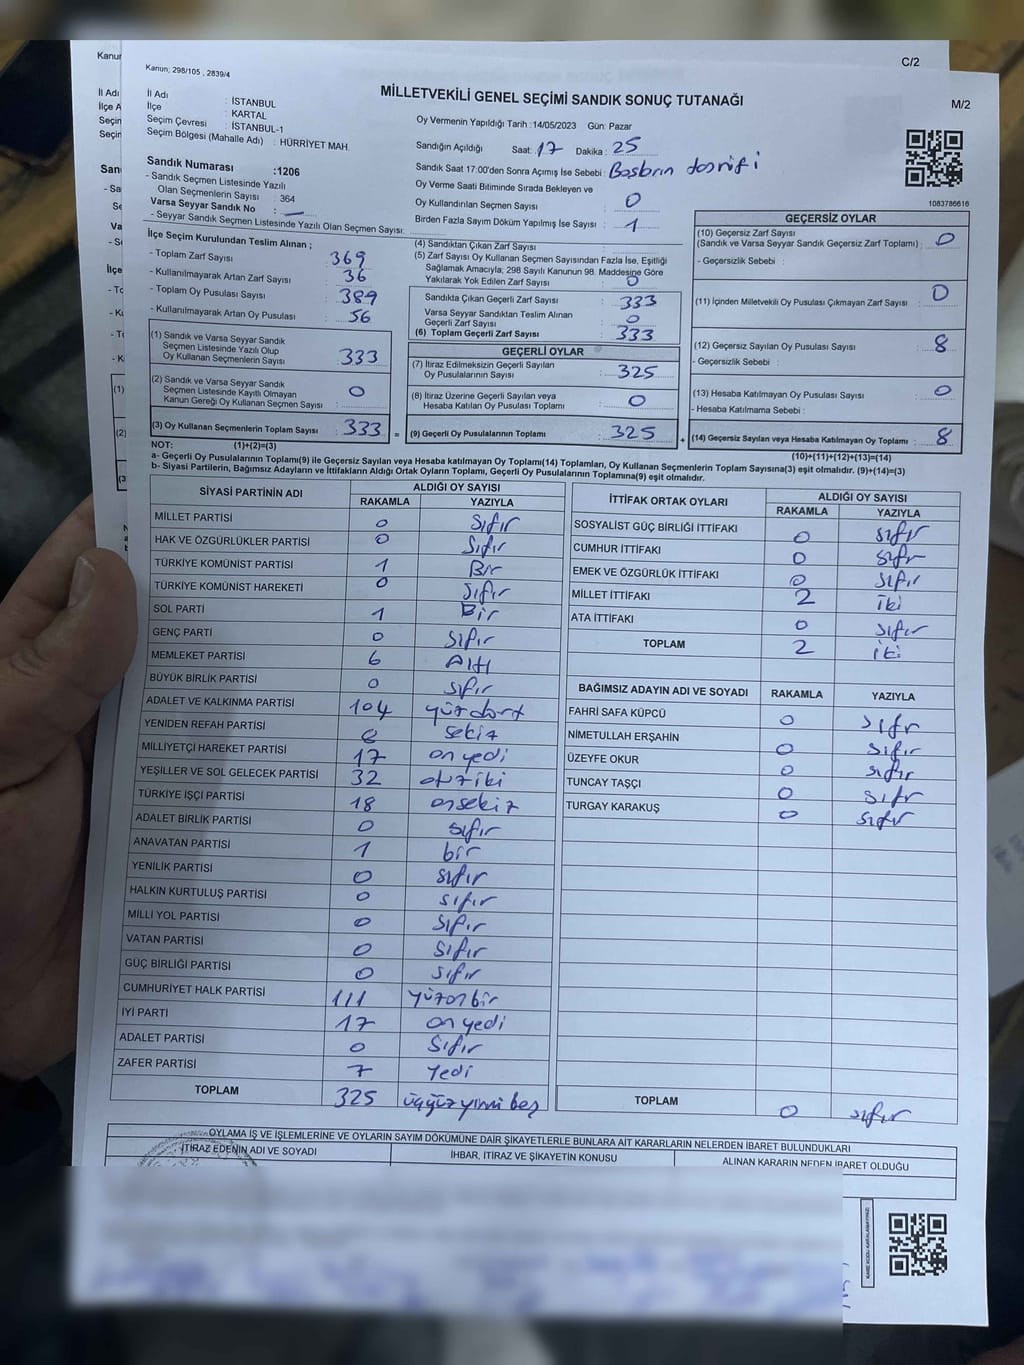 C/2
Kanun; 298/105 , 2839/4
MİLLETVEKİLİ GENEL SEÇİMİ SANDIK SONUÇ TUTANAĞI
M/2
İl Adı : İSTANBUL
İlçe : KARTAL
Seçim Çevresi : İSTANBUL-1
Seçim Bölgesi (Mahalle Adı) : HÜRRİYET MAH.
Oy Vermenin Yapıldığı Tarih :14/05/2023 Gün: Pazar
Sandığın Açıldığı Saat: 17 Dakika: 25
Sandık Saat 17:00'den Sonra Açımış İse Sebebi :
Oy Verme Saati Bitiminde Sırada Bekleyen ve
Oy Kullandırılan Seçmen Sayısı : 0
Birden Fazla Sayım Döküm Yapılmış İse Sayısı : 1
1083786616
Sandık Numarası :1206
- Sandık Seçmen Listesinde Yazılı
Olan Seçmenlerin Sayısı : 364
Varsa Seyyar Sandık No : —
- Seyyar Sandık Seçmen Listesinde Yazılı Olan Seçmen Sayısı:
İlçe Seçim Kurulundan Teslim Alınan ;
- Toplam Zarf Sayısı : 369
- Kullanılmayarak Artan Zarf Sayısı : 36
- Toplam Oy Pusulası Sayısı : 389
- Kullanılmayarak Artan Oy Pusulası : 56
(1) Sandık ve Varsa Seyyar Sandık
Seçmen Listesinde Yazılı Olup
Oy Kullanan Seçmenlerin Sayısı : 333
(2) Sandık ve Varsa Seyyar Sandık
Seçmen Listesinde Kayıtlı Olmayan
Kanun Gereği Oy Kullanan Seçmen Sayısı : 0
(3) Oy Kullanan Seçmenlerin Toplam Sayısı : 333
(4) Sandıktan Çıkan Zarf Sayısı :
(5) Zarf Sayısı Oy Kullanan Seçmen Sayısından Fazla İse, Eşitliği
Sağlamak Amacıyla; 298 Sayılı Kanunun 98. Maddesine Göre
Yakılarak Yok Edilen Zarf Sayısı : 0
Sandıkta Çıkan Geçerli Zarf Sayısı : 333
Varsa Seyyar Sandıktan Teslim Alınan
Geçerli Zarf Sayısı : 0
(6) Toplam Geçerli Zarf Sayısı : 333
GEÇERLİ OYLAR
(7) İtiraz Edilmeksizin Geçerli Sayılan
Oy Pusulalarının Sayısı : 325
(8) İtiraz Üzerine Geçerli Sayılan veya
Hesaba Katılan Oy Pusulası Toplamı : 0
= (9) Geçerli Oy Pusulalarının Toplamı : 325
GEÇERSİZ OYLAR
(10) Geçersiz Zarf Sayısı
(Sandık ve Varsa Seyyar Sandık Geçersiz Zarf Toplamı) : 0
- Geçersizlik Sebebi :
(11) İçinden Milletvekili Oy Pusulası Çıkmayan Zarf Sayısı : 0
(12) Geçersiz Sayılan Oy Pusulası Sayısı : 8
- Geçersizlik Sebebi :
(13) Hesaba Katılmayan Oy Pusulası Sayısı : 0
- Hesaba Katılmama Sebebi :
+ (14) Geçersiz Sayılan veya Hesaba Katılmayan Oy Toplamı : 8
NOT: (1)+(2)=(3)
(10)+(11)+(12)+(13)=(14)
a- Geçerli Oy Pusulalarının Toplamı(9) ile Geçersiz Sayılan veya Hesaba katılmayan Oy Toplamı(14) Toplamları, Oy Kullanan Seçmenlerin Toplam Sayısına(3) eşit olmalıdır. (9)+(14)=(3)
b- Siyasi Partilerin, Bağımsız Adayların ve İttifakların Aldığı Ortak Oyların Toplamı, Geçerli Oy Pusulalarının Toplamına(9) eşit olmalıdır.
SİYASİ PARTİNİN ADI ALDIĞI OY SAYISI
RAKAMLA YAZIYLA
MİLLET PARTİSİ 0 sıfır
HAK VE ÖZGÜRLÜKLER PARTİSİ 0 sıfır
TÜRKİYE KOMÜNİST PARTİSİ 1 Bir
TÜRKİYE KOMÜNİST HAREKETİ 0 sıfır
SOL PARTİ 1 Bir
GENÇ PARTİ 0 sıfır
MEMLEKET PARTİSİ 6 Altı
BÜYÜK BİRLİK PARTİSİ 0 sıfır
ADALET VE KALKINMA PARTİSİ 104 yüzdört
YENİDEN REFAH PARTİSİ 8 sekiz
MİLLİYETÇİ HAREKET PARTİSİ 17 on yedi
YEŞİLLER VE SOL GELECEK PARTİSİ 32 otuziki
TÜRKİYE İŞÇİ PARTİSİ 18 onsekiz
ADALET BİRLİK PARTİSİ 0 sıfır
ANAVATAN PARTİSİ 1 bir
YENİLİK PARTİSİ 0 sıfır
HALKIN KURTULUŞ PARTİSİ 0 sıfır
MİLLİ YOL PARTİSİ 0 sıfır
VATAN PARTİSİ 0 sıfır
GÜÇ BİRLİĞİ PARTİSİ 0 sıfır
CUMHURİYET HALK PARTİSİ 111 yüzonbir
İYİ PARTİ 17 on yedi
ADALET PARTİSİ 0 sıfır
ZAFER PARTİSİ 7 yedi
TOPLAM 325 üçyüzyirmi beş
İTTİFAK ORTAK OYLARI ALDIĞI OY SAYISI
RAKAMLA YAZIYLA
SOSYALİST GÜÇ BİRLİĞİ İTTİFAKI 0 sıfır
CUMHUR İTTİFAKI 0 sıfır
EMEK VE ÖZGÜRLÜK İTTİFAKI 0 sıfır
MİLLET İTTİFAKI 2 iki
ATA İTTİFAKI 0 sıfır
TOPLAM 2 iki
BAĞIMSIZ ADAYIN ADI VE SOYADI RAKAMLA YAZIYLA
FAHRİ SAFA KÜPCÜ 0 sıfır
NİMETULLAH ERŞAHİN 0 sıfır
ÜZEYFE OKUR 0 sıfır
TUNCAY TAŞÇI 0 sıfır
TURGAY KARAKUŞ 0 sıfır
TOPLAM 0 sıfır
OYLAMA İŞ VE İŞLEMLERİNE VE OYLARIN SAYIM DÖKÜMÜNE DAİR ŞİKAYETLERLE BUNLARA AİT KARARLARIN NELERDEN İBARET BULUNDUKLARI
İTİRAZ EDENİN ADI VE SOYADI İHBAR, İTİRAZ VE ŞİKAYETİN KONUSU ALINAN KARARIN NEDEN İBARET OLDUĞU